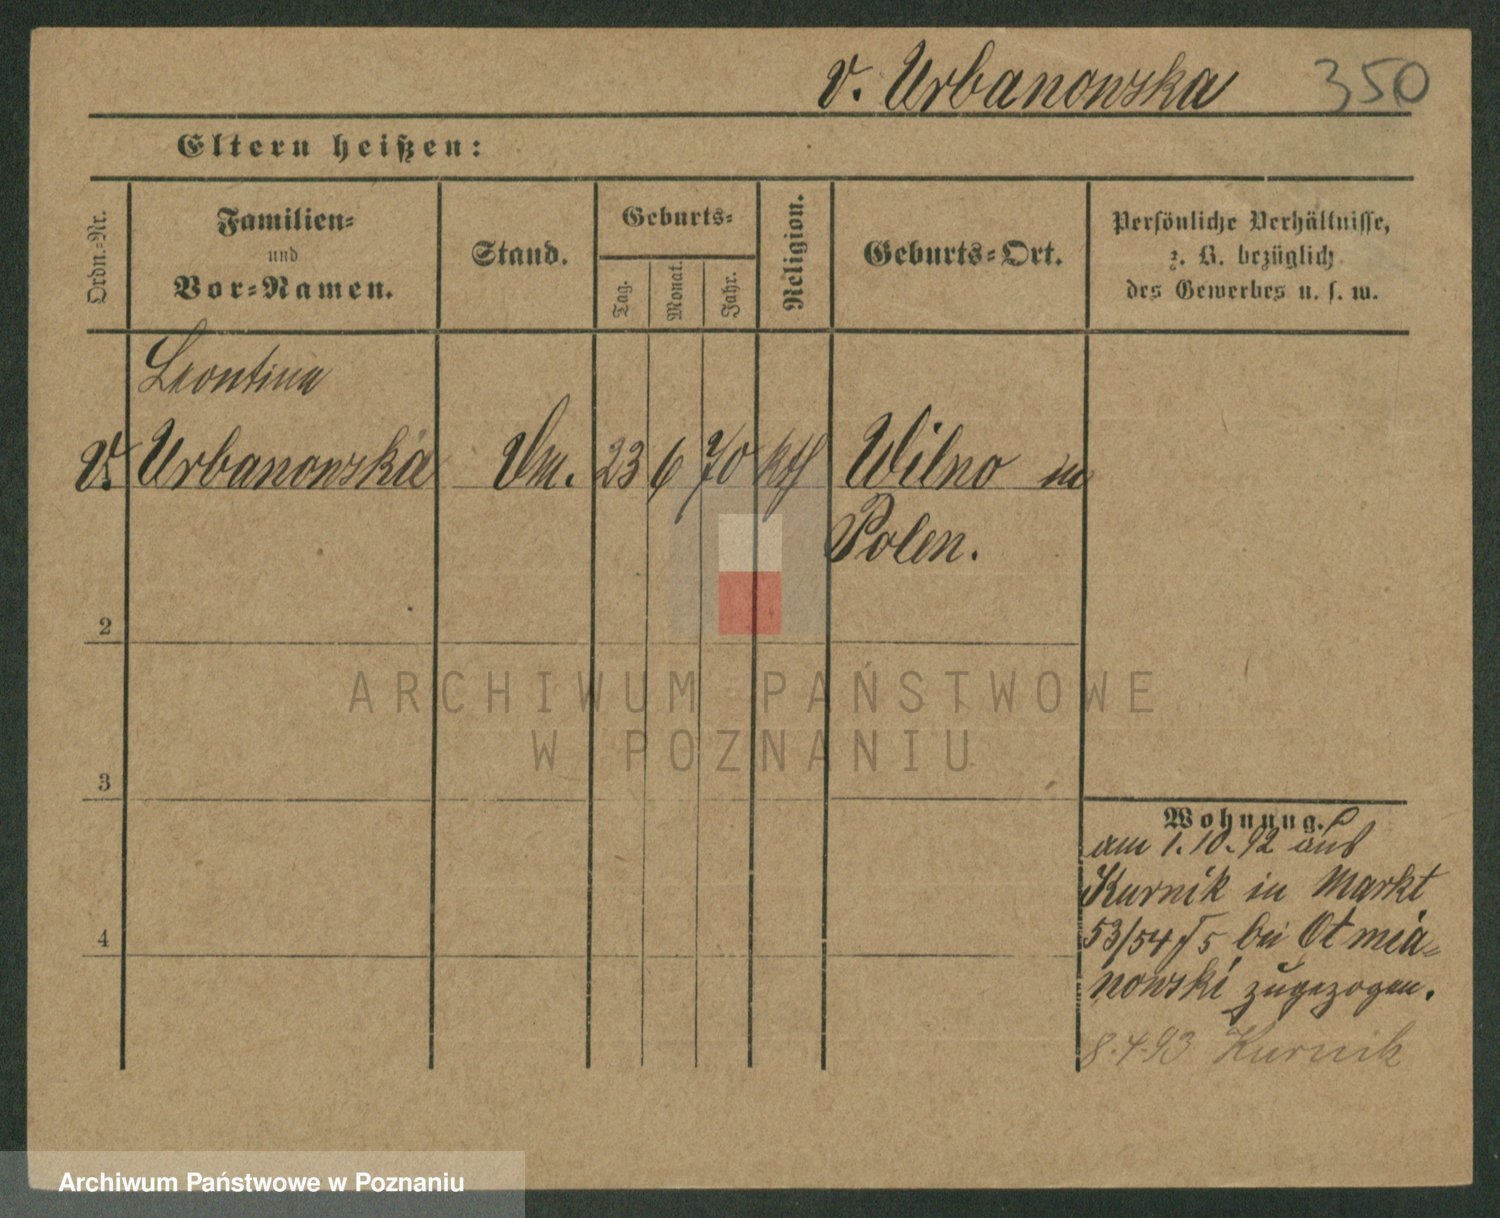 v. Urbanowska 350
Eltern heißen:
Ordn.-Nr.
Familien-
und
Vor-Namen.
Stand.
Geburts-
Tag.
Monat.
Jahr.
Religion.
Geburts-Ort.
Persönliche Verhältnisse,
z. B. bezüglich
des Gewerbes u. s. w.
Leontina
v. Urbanowska 23 6 70 kth Wilno in
Polen.
2
3
4
Wohnung.
am 1.10.92 aus
Kurnik in Markt
53/54 bei Otmia-
nowski zugezogen.
8.4.93 Kurnik
ARCHIWUM PAŃSTWOWE
W POZNANIU
Archiwum Państwowe w Poznaniu